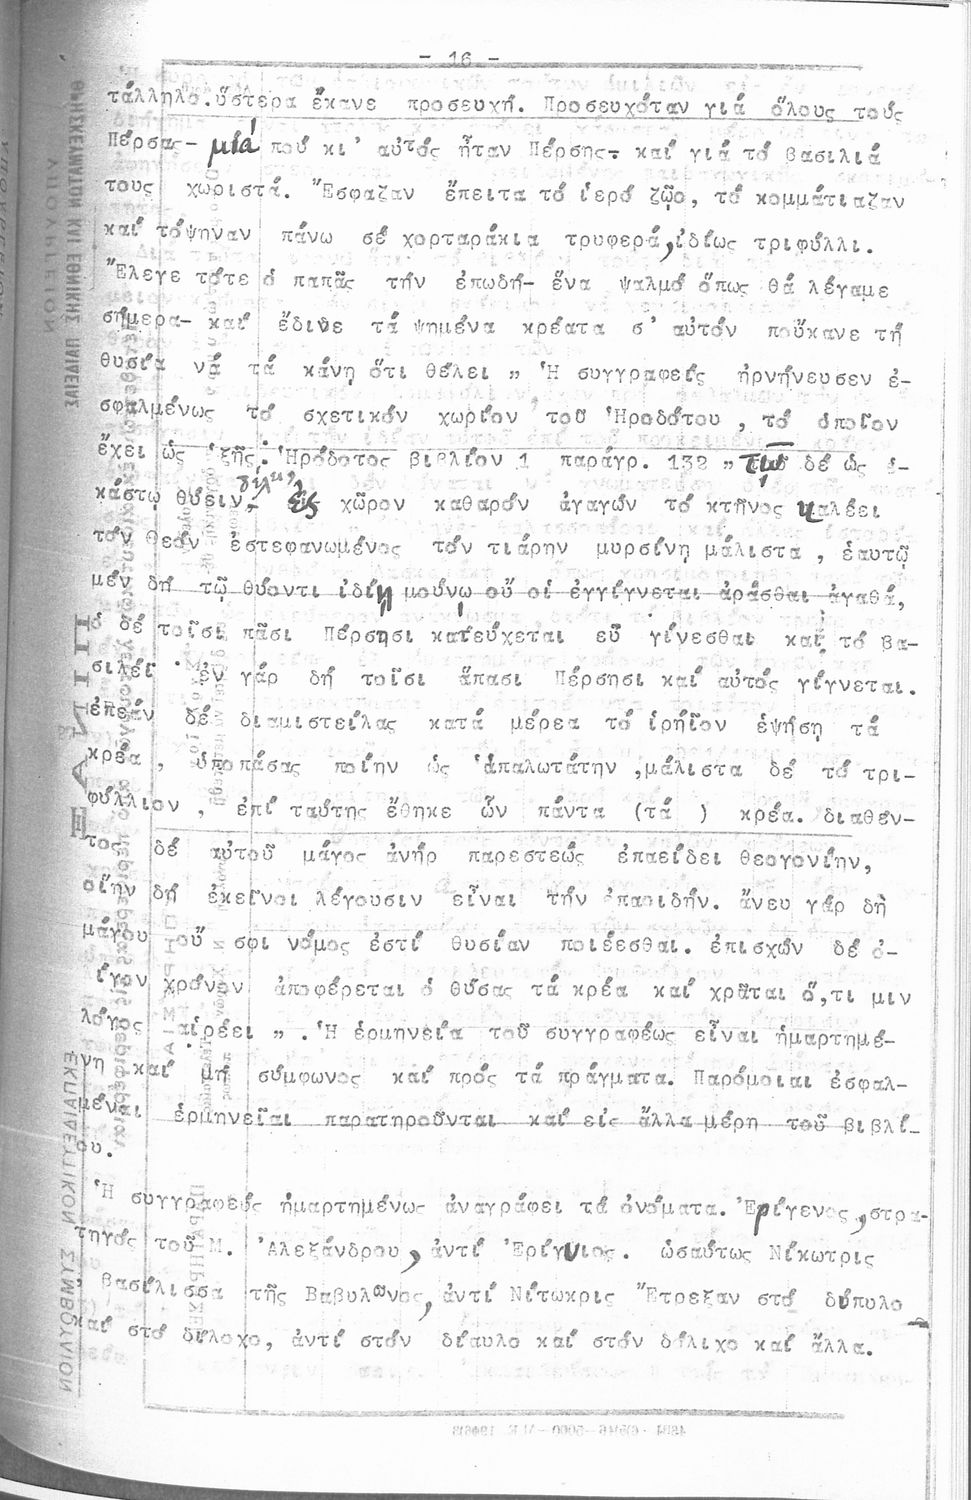 - 16 -
τάλληλο.ὕστερα ἔκανε προσευχή. Προσευχόταν γιά ὅλους τούς
Πέρσας- μιά πού κι' αὐτός ἦταν Πέρσης- καί γιά τό βασιλιά
τους χωριστά. Ἔσφαζαν ἔπειτα τό ἱερό ζῷο, τό κομμάτιαζαν
καί τόψηναν πάνω σέ χορταράκια τρυφερά, ἰδίως τριφύλλι.
Ἔλεγε τότε ὁ παπᾶς τήν ἐπωδή- ἕνα ψαλμό ὅπως θά λέγαμε
σήμερα- καί ἔδινε τά ψημένα κρέατα σ' αὐτόν πούκανε τή
θυσία νά τά κάνη ὅτι θέλει „ Ἡ συγγραφεύς ἡρνήνευσεν ἐ-
σφαλμένως τό σχετικόν χωρίον τοῦ Ἡροδότου , τό ὁποῖον
ἔχει ὡς ἑξῆς: Ἡρόδοτος βιβλίον 1 παράγρ. 132 „ τῶν δέ ὡς ἑ-
κάστῳ θύειν θέλῃ, ἐς χῶρον καθαρόν ἀγαγών τό κτῆνος καλέει
τόν θεόν ἐστεφανωμένος τόν τιάρην μυρσίνη μάλιστα , ἑαυτῷ
μέν δή τῷ θύοντι ἰδίῃ μούνω οὔ οἱ ἐγγίγνεται ἀρᾶσθαι ἀγαθά,
ὁ δέ τοῖσι πᾶσι Πέρσησι κατεύχεται εὖ γίνεσθαι καί τό βα-
σιλέι · ἐν γάρ δή τοῖσι ἅπασι Πέρσησι καί αὐτός γίγνεται.
ἐπεάν δέ διαμιστείλας κατά μέρεα τό ἱρήϊον ἑψήση τά
κρέα , ὑποπάσας ποίην ὡς ἁπαλωτάτην ,μάλιστα δέ τό τρι-
φύλλιον , ἐπί ταύτης ἔθηκε ὦν πάντα (τά ) κρέα. διαθέν-
τος δέ αὐτοῦ μάγος ἀνήρ παρεστεώς ἐπαείδει θεογονίην,
οἵην δή ἐκεῖνοι λέγουσιν εἶναι τήν ἐπαοιδήν. ἄνευ γάρ δή
μάγου οὔ σφι νόμος ἐστί θυσίαν ποιέεσθαι. ἐπισχών δέ ὀ-
ίγον χρόνον ἀποφέρεται ὁ θύσας τά κρέα καί χρᾶται ὅ,τι μιν
λόγος αἱρέει „ . Ἡ ἑρμηνεία τοῦ συγγραφέως εἶναι ἡμαρτημέ-
νη καί μή σύμφωνος καί πρός τά πράγματα. Παρόμοιαι ἐσφαλ-
μέναι ἑρμηνεῖαι παρατηροῦνται καί εἰς ἄλλα μέρη τοῦ βιβλί-
ου.
Ἡ συγγραφεύς ἡμαρτημένως ἀναγράφει τά ὀνόματα. Ἐρίγενος, στρα-
τηγός τοῦ Μ. Ἀλεξάνδρου, ἀντί Ἐρίγυιος. ὡσαύτως Νίκωτρις
, βασίλισσα τῆς Βαβυλῶνος, ἀντί Νίτωκρις Ἔτρεξαν στό δύπυλο
καί στό δίλοχο, ἀντί στόν δίαυλο καί στόν δόλιχο καί ἄλλα.